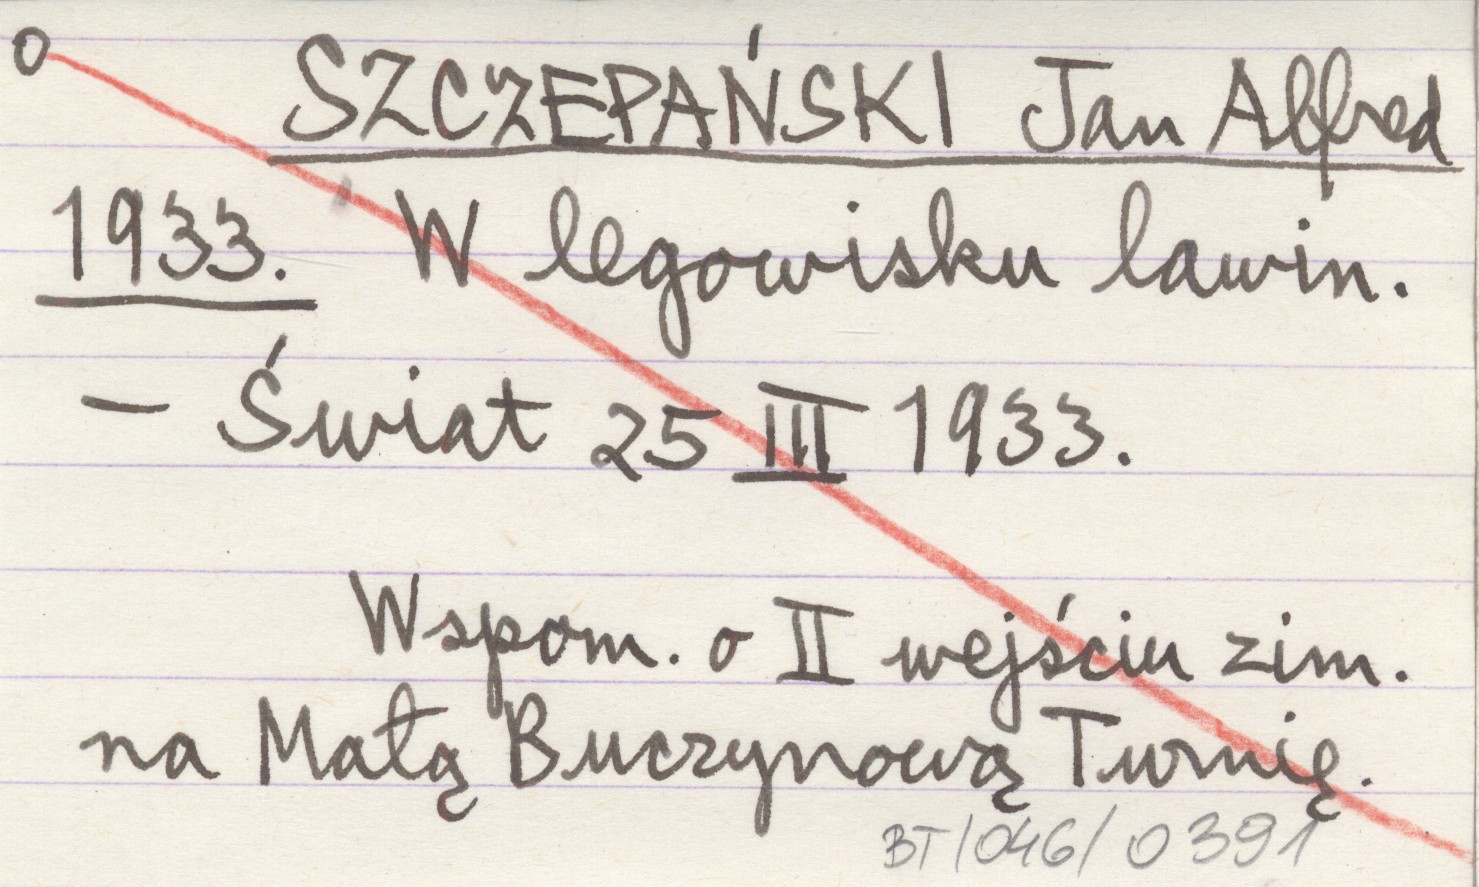 o
SZCZEPAŃSKI Jan Alfred
1933. W legowisku lawin.
— Świat 25 III 1933.
Wspom. o II wejściu zim.
na Małą Buczynową Turnię.
BT/046/0391